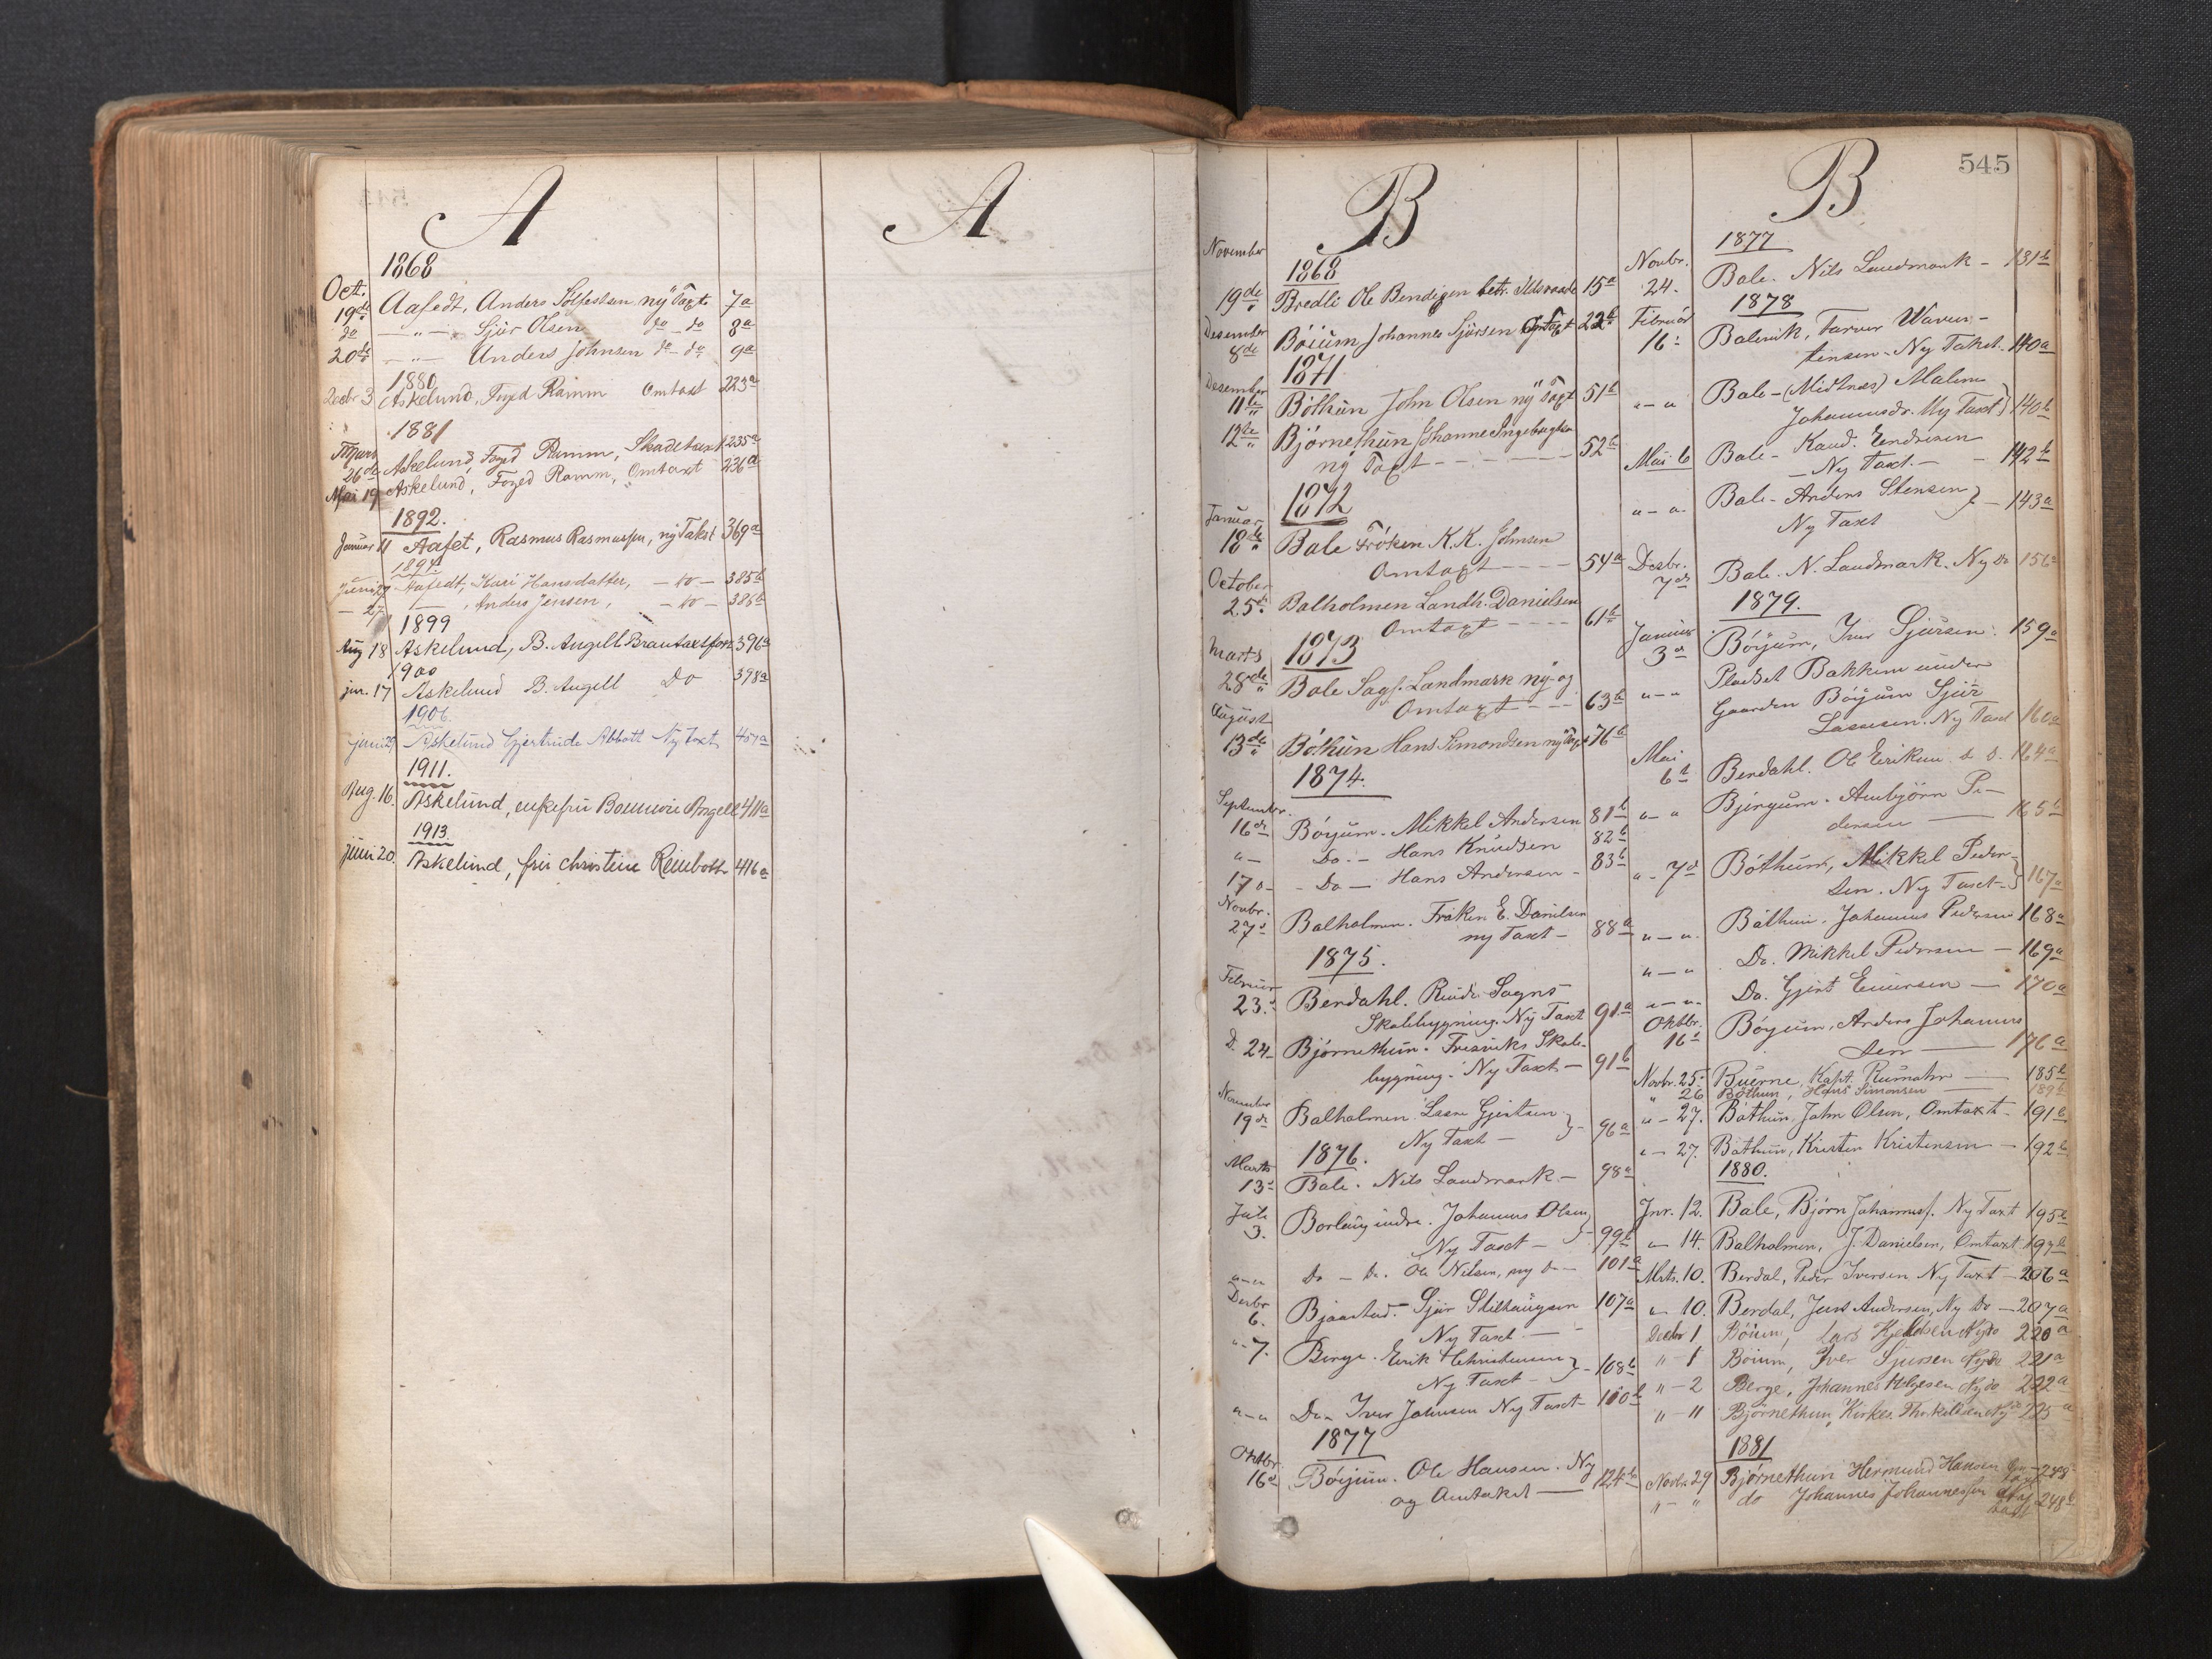 A
1868
Oct.
19de Aafedt, Anders Solfestsen, ny Taxt 7a
do — " — Sjur Olsen do - do 8a
20de — " — Anders Johnsen do - do 9a
1880
Decbr 3 Askelund, Foged Ramm Omtaxt 223a
1881
Marts 26de Askelund, Foged Ramm, Skadetaxt 235a
Mai 19 Askelund, Foged Ramm, Omtaxt 236a
1892.
Januar 11 Aafet, Rasmus Rasmussen, ny Takst 369a
1894.
Juni 27 Aafedt, Kari Hansdatter, — do — 385b
— 27 — , Anders Jensen, — do — 386b
1899
Aug 18 Askelund, B. Angell Brantaxtforr 396a
1900
jan. 17 Askelund B. Angell Do 398a
1906.
juni 29 Askelund Gjertrude Abbott Ny Taxt 407a
1911.
Aug. 16. Askelund, enkefru Angell 411a
1913.
juni 20. Askelund, fru Christine Reinbolt 416a
A
B
November
1868
19de Bredli Ole Bendixen betr. Ildsvaade 15a
Desember
8de Böium Johannes Sjursen Omtaxt 22b
1871
Desember
11te Böthun John Olsen ny Taxt 51b
12te Björnethun Johanne Ingebrigtsen
ny Taxt - - - - 52b
1872
Januar
18de Bale Fröken K. K. Johnsen
Omtaxt - - - - 54a
October
25de Balholmen Landh. Danielsen
Omtaxt - - - - 61b
1873
Marts
28de Bale Sagf. Landmark ny og
Omtaxt - - - 63b
August
13de Böthun Hans Simondsen ny Taxt 76b
1874.
September.
16de Böyum - Mikkel Andersen 81b
"— Do. — Hans Knudsen 82b
17d - Do — Hans Andersen - 83b
Novbr.
27d Balholmen. Fröken E. Danielsen
ny Taxt — 88a
1875.
Februar
23.d Berdahl. Rinde Sogns
Skolebygning. Ny Taxt 91a
D. 24 Björnethun. Fresviks Skole-
bygning. Ny Taxt — 91b
November
19de Balholmen. Lasse Gjertsen
Ny Taxt — 96a
1876.
Marts
13d Bale. Nils Landmark — 98a
Juli
3. Borlaug indre. Johannes Olsen
Ny Taxt — 99b
"—" Do — Do. Ole Nilsen, ny Do — 101a
Desbr
6. Bjaastad. Sjur Stilhaugsen 107a
Ny Taxt —
"- 7. Berge. Erik Christensen
Ny Taxt — 108b
"—" Do. Iver Johnsen Ny Taxt 110b
1877
Oktbr.
16d Böyum. Ole Hansen. Ny
og Omtakst — 124b
B
545
1877
Novbr.
24. Bale. Nils Landmark — 131b
1878
Februar
16d Balevik,
tensen. Ny Takst. 140a
"—" Bale - (Midtnæs) Malene
Johannesdr. Ny Taxt 140b
Mai 6 Bale - Knud. Endresen
— Ny Taxt. — 142b
"—" Bale - Anders Stensen
Ny Taxt — 143a
Desbr.
7de Bale. N. Landmark. Ny Do 156a
1879.
Januar
3d Böyum, Iver Sjursen. 159a
"—" Pladset Bakken under
Gaarden Böyum Sjur
Lassesen. Ny Taxt 160a
Mai
6d Berdahl. Ole Eriksen d. d. 164a
"—" Björgum. Ambjörn Pe-
dersen — 165b
"- 7d Böthun, Mikkel Peder-
sen. Ny Taxt 167a
"—" Böthun. Johannes Pedersen 168a
"—" Do. Mikkel Pedersen — 169a
"—" Do. Gjert Einersen — 170a
Oktbr.
16d Böyum, Anders Johannes
sen — 176a
Novbr. 25. Buerne, Kapt. Rumohr — 185b
" 26 Böthun, Hans Simonsen — 189b
"- 27. Böthun, John Olsen, Omtaxt - 191b
"- 27. Böthun, Kristen Kristensen — 192b
1880.
Jnr. 12. Bale, Björn Johannesf. Ny Taxt 195b
"- 14. Balholmen, J. Danielsen, Omtaxt 197b
Mrts. 10. Berdal, Peder Iversen Ny Taxt — 206a
"- 10. Berdal, Jens Andersen, Ny Do — 207a
Decbr 1 Böium, Lars Kjeldsen Ny do 220a
" - 1 Böium, Iver Sjursen Ny do 221a
" - 2 Berge, Johannes Helgesen Ny do 222a
" - 11 Björnethun, Kirkes. Thorkildsen Ny do 225a
1881
Novbr. 29 Björnethun Hermund Hansen Om-taxt 248
" - " do Johannes Johannessen Ny taxt 248b